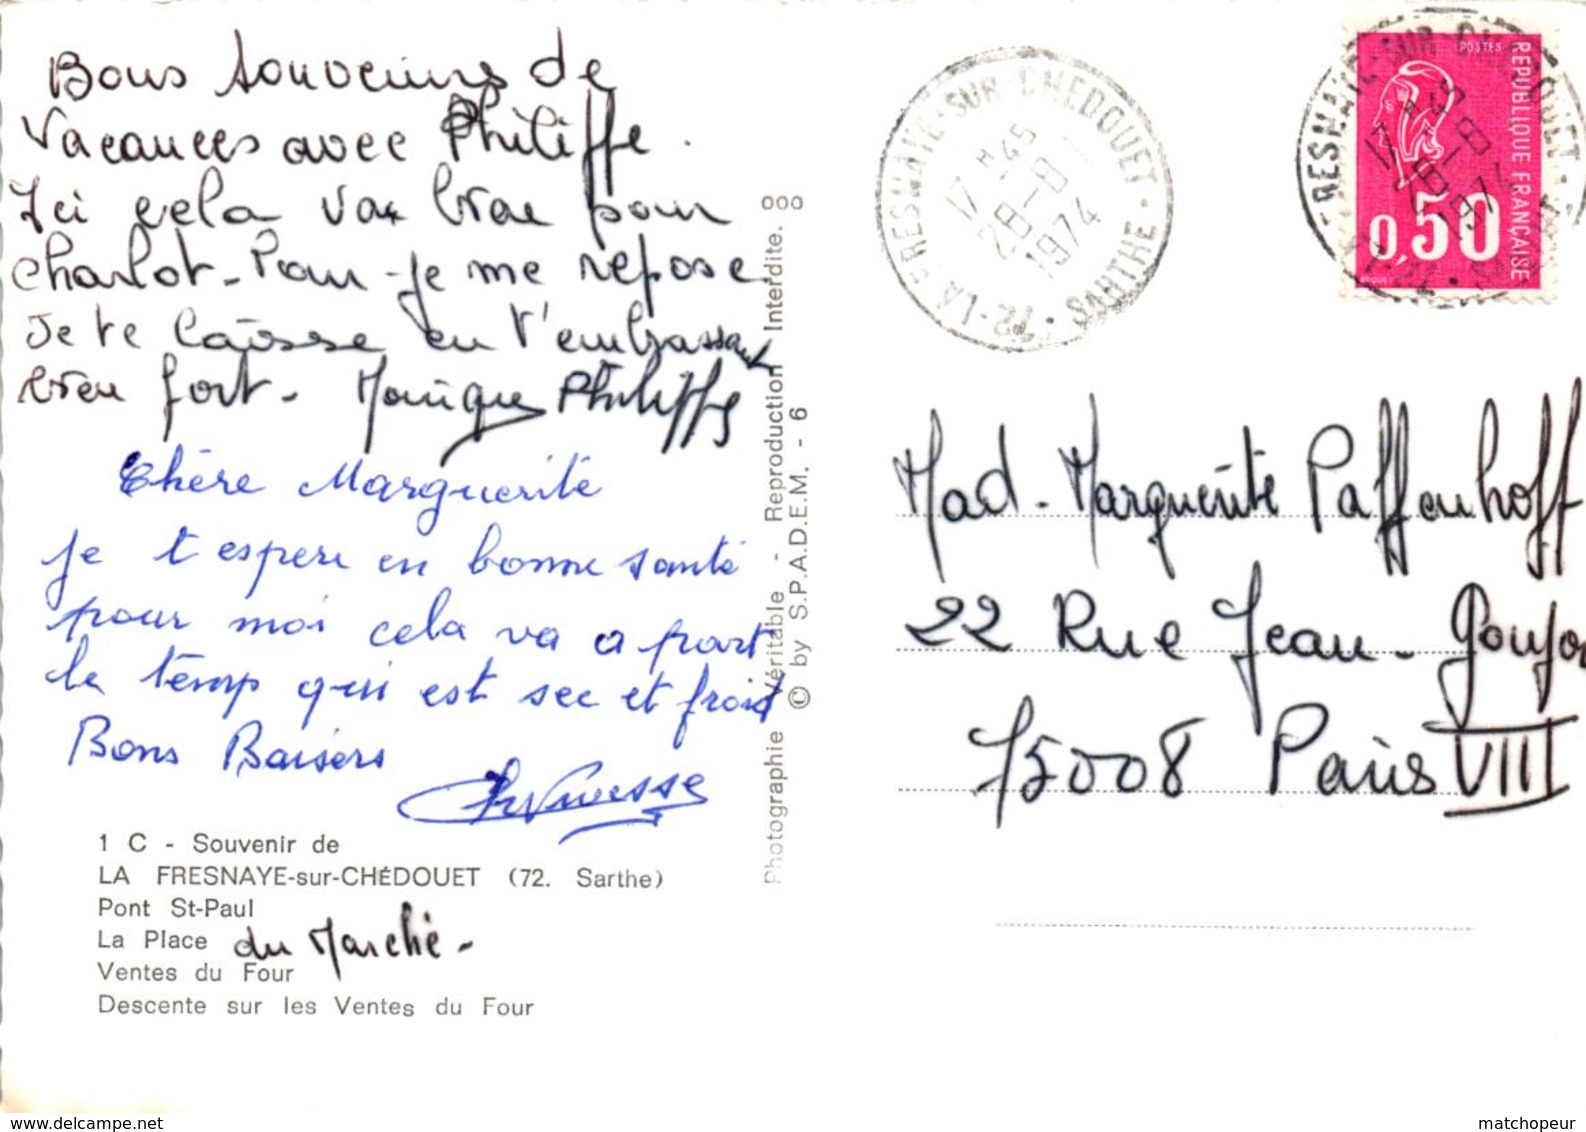 Bons souvenirs de
Vacances avec Philippe.
Ici cela va bien pour
Charlot - Pour - je me repose
Je te laisse en t'embrassant
bien fort - Monique Philippe
Chère Marguerite
je t espere en bonne santé
pour moi cela va a part
le temp qui est sec et froid
Bons Baisers
1 C - Souvenir de
LA FRESNAYE-sur-CHÉDOUET (72. Sarthe)
Pont St-Paul
La Place du Marché -
Ventes du Four
Descente sur les Ventes du Four
Photographie Véritable - Reproduction Interdite.
© by S.P.A.D.E.M. - 6
72 - LA FRESNAYE-SUR-CHEDOUET · SARTHE ·
17 H 45
28 - 8
1974
POSTES
REPUBLIQUE FRANÇAISE
0,50
Mad - Marguerite Paffenhoff
22 Rue Jean - Goujon
75008 Paris VIII
delcampe.net
matchopeur